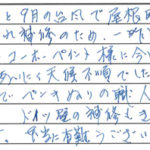 と9月の台風で屋根
れ補修のため、一昨
コーポーペイント様に今
あいにく天候不順でした
でペンキぬりの職人
ドイツ壁の補修もき
。本当に有難うござい